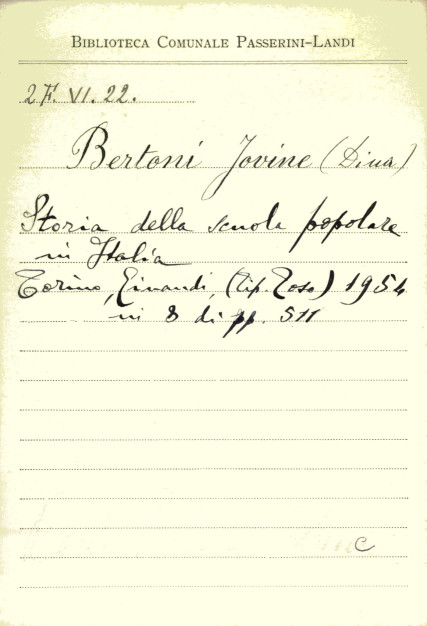 BIBLIOTECA COMUNALE PASSERINI-LANDI
2 F. VI. 22.
Bertoni Jovine (Dina)
Storia della scuola popolare
in Italia
Torino, Einaudi, (Tip. Toso) 1954
in 8 di pp. 511
C